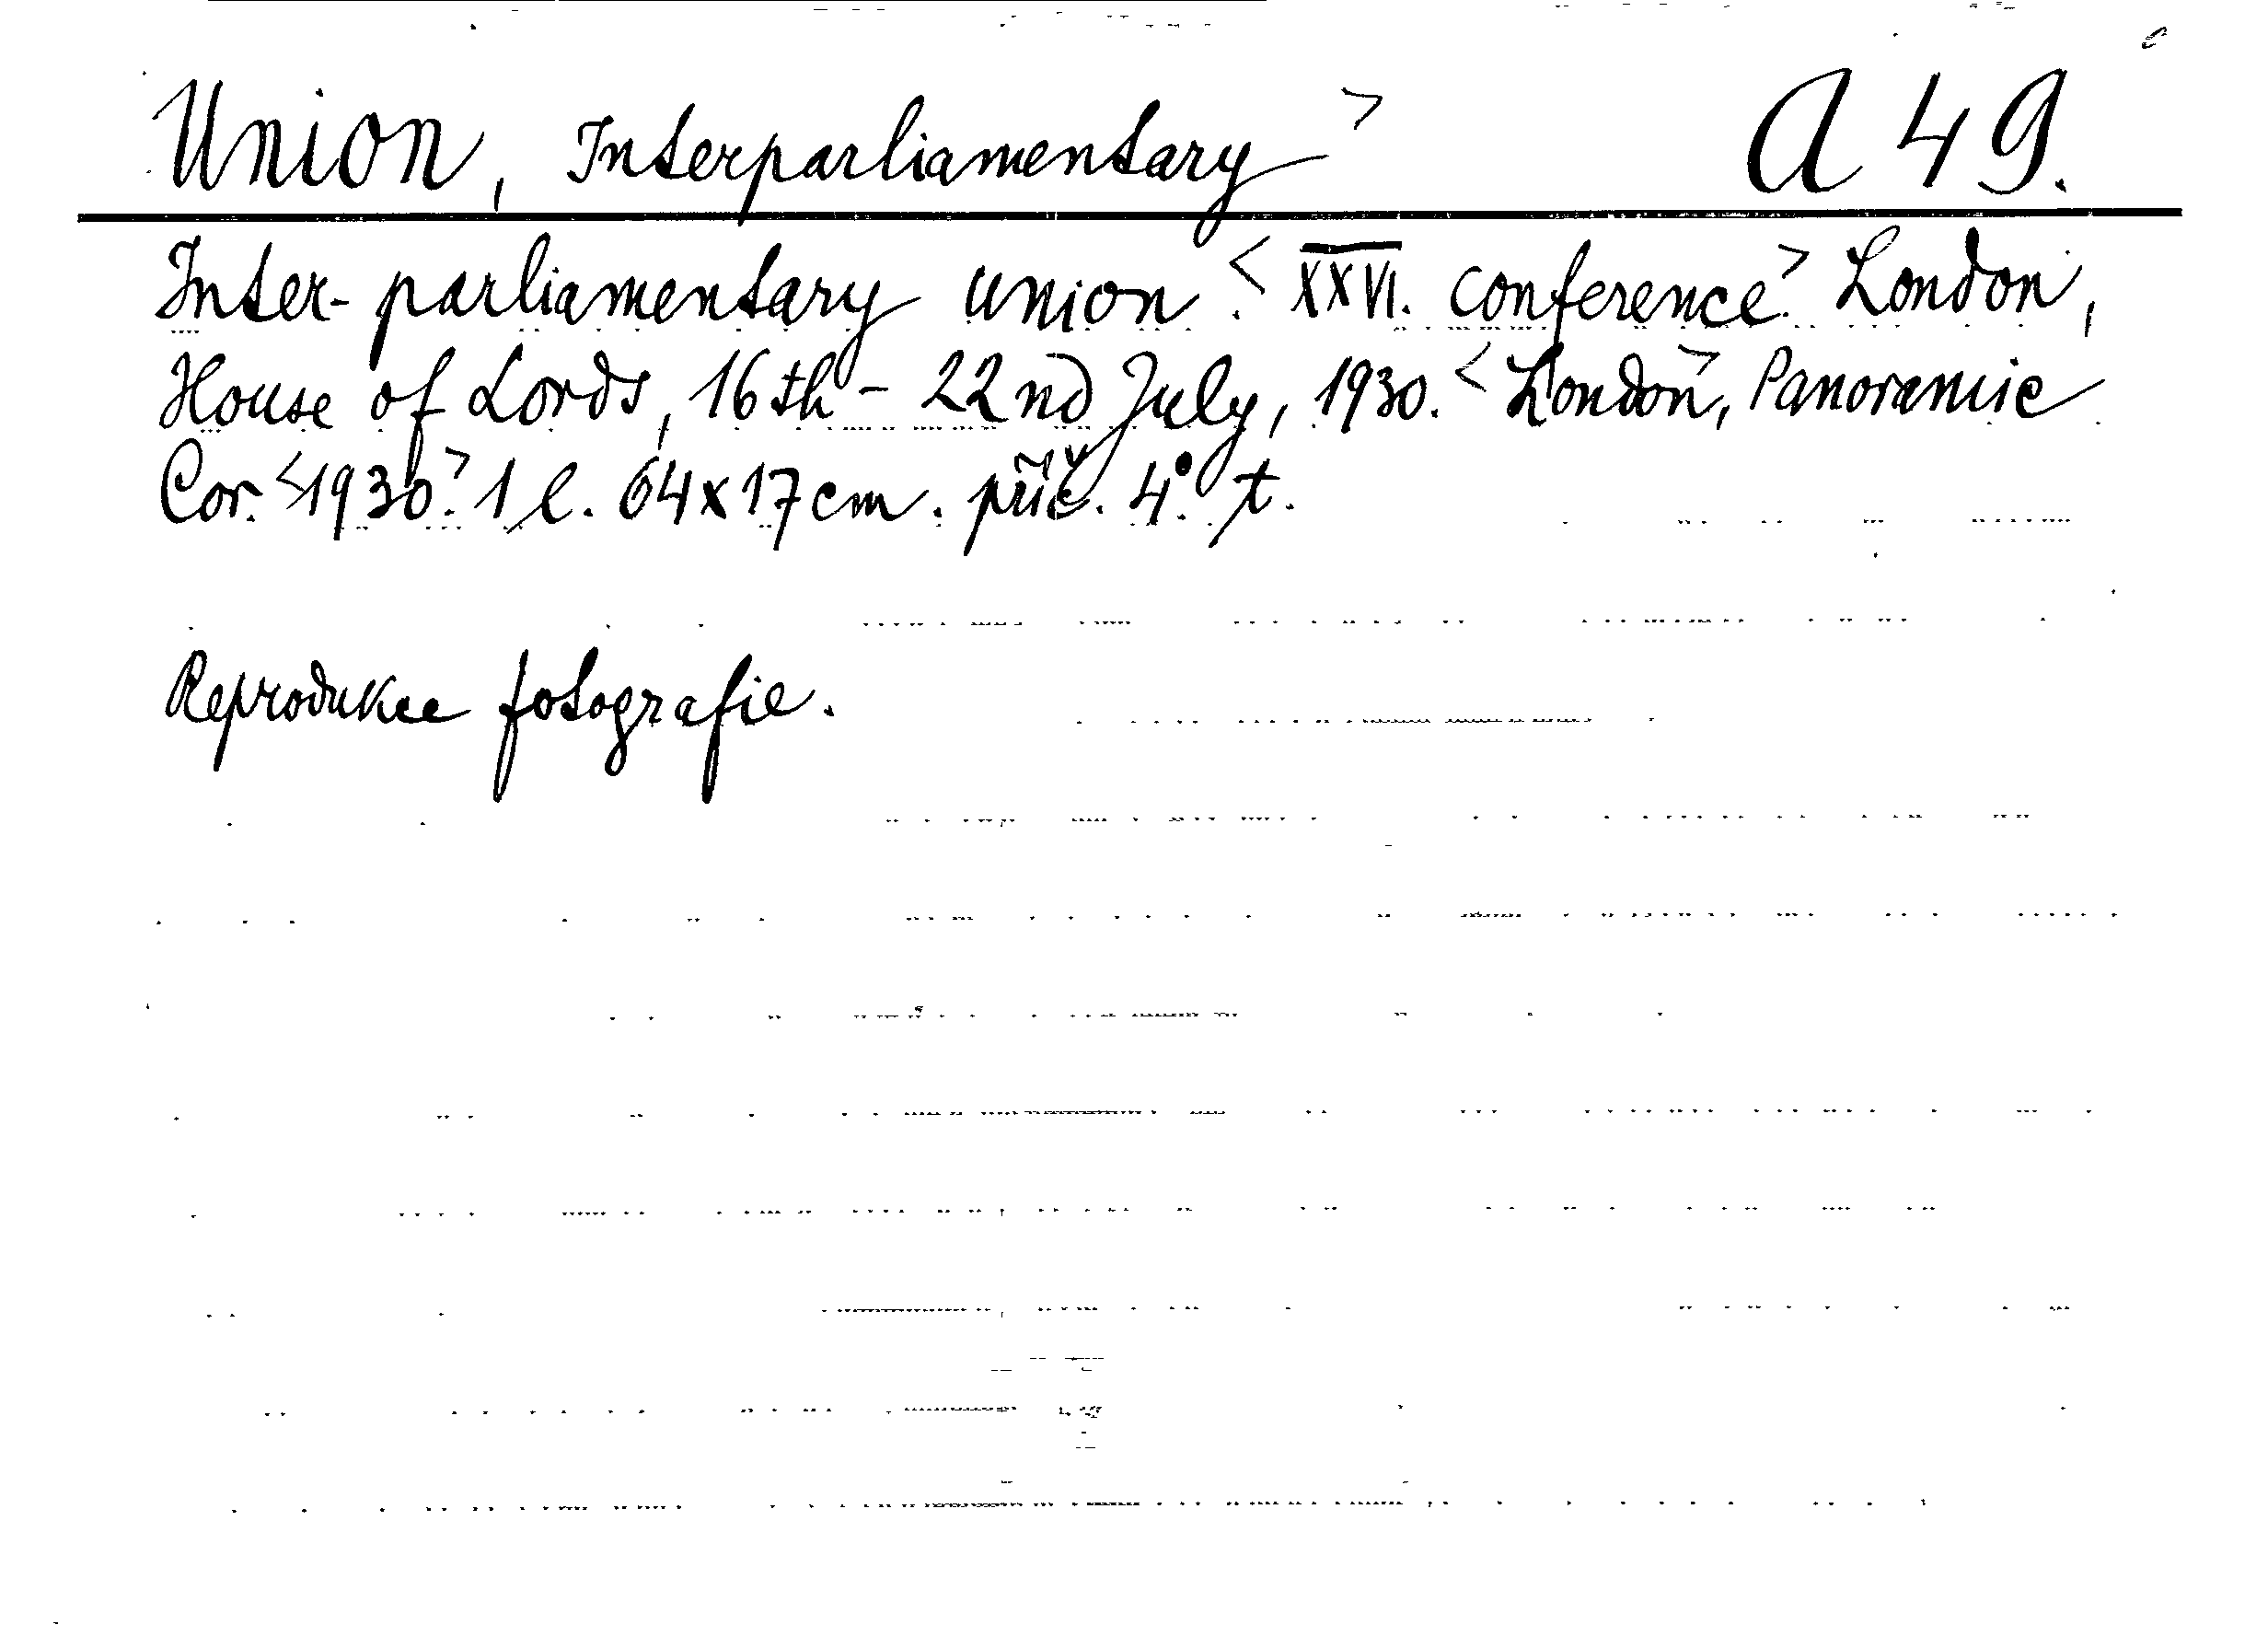 Union, Interparliamentary> A 49.
Inter-parliamentary union. <XXVI. conference.> London,
House of Lords, 16th - 22nd July, 1930. <London>, Panoramic
Cor. <1930.> 1 l. 64x17cm. příč. 4° t.
Reprodukce fotografie.